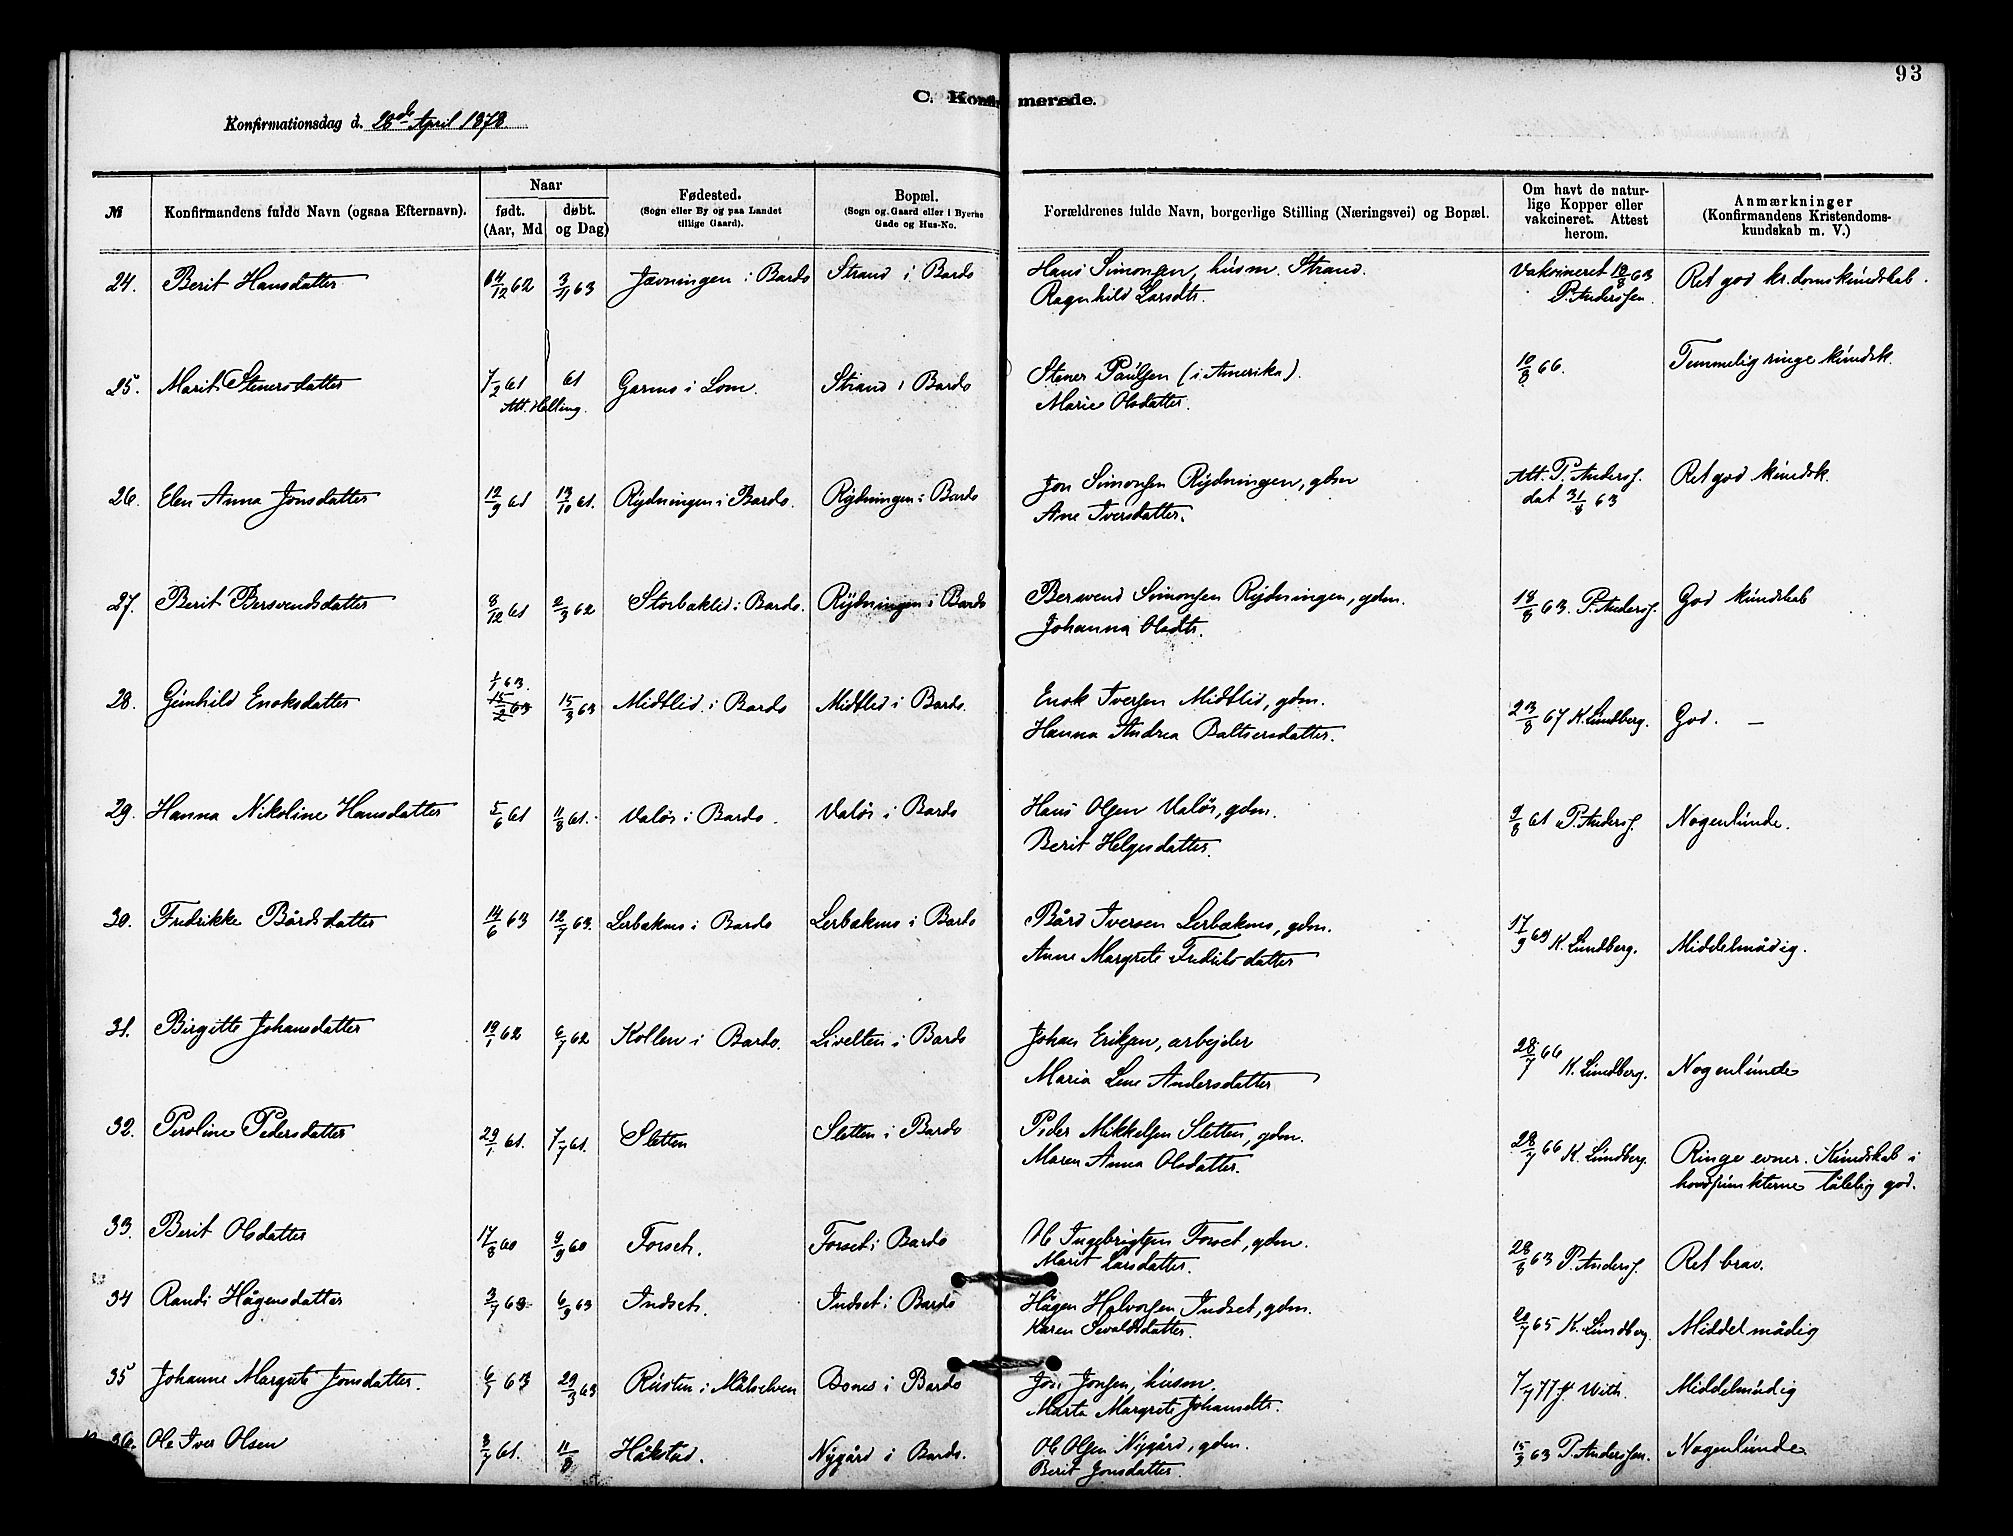 93
C. Konfirmerede.
Konfirmationsdag d. 28de April 1878.
№ | Konfirmandens fulde Navn (ogsaa Efternavn). | Naar født. (Aar, Md. | døbt. og Dag) | Fødested. (Sogn eller By og paa Landet tillige Gaard). | Bopæl. (Sogn og Gaard eller i Byerne Gade og Hus-No. | Forældrenes fulde Navn, borgerlige Stilling (Næringsvei) og Bopæl. | Om havt de naturlige Kopper eller vakcineret. Attest herom. | Anmærkninger (Konfirmandens Kristendomskundskab m. V.)
24. Berit Hansdatter 14/12 62 3/11 63 Jævningen i Bardo Strand i Bardo Hans Simonsen, husm. Strand. Vakcineret 18/8 63 Ret god kr.domskundskab.
Ragnhild Larsdtr. P. Andersen
25. Marit Stenersdatter 7/2 61 61 Garmo i Lom. Strand i Bardo Stener Paulsen (i Amerika). 10/8 66. Temmelig ringe kundsk.
Att. Halling. Marie Olsdatter.
26. Elen Anna Jonsdatter 12/9 61 13/10 61. Rydningen i Bardo. Rydningen i Bardo Jon Simonsen Rydningen, gdm Att. P. Anders. Ret god kundsk.
Ane Iversdatter. dat 31/8 63
27. Berit Bersvendsdatter 8/12 61 2/3 62 Storbaklid i Bardo. Rydningen i Bardo Bersvend Simonsen Rydningen, gdm. 18/8 63. P. Anders. God kundskab
Johanna Olsdtr.
28. Gunhild Enoksdatter 1/1 63. 15/2 63 15/3 63 Midtlid i Bardo Midtlid i Bardo. Enok Iversen Midtlid, gdm. 23/8 67 K. Lundberg. God. —
Hanna Andrea Baltsersdatter.
29. Hanna Nikoline Hansdatter 5/6 61 11/8 61. Valøs i Bardo. Valøs i Bardo Hans Olsen Valøs, gdm. 9/8 61 P. Anders. Nogenlunde.
Berit Helgesdatter.
30. Fredrikke Bårdsdatter 14/6 63 12/7 63. Lerbækmo i Bardo Lerbækmo i Bardo Bård Iversen Lerbækmo, gdm. 17/9 69 K. Lundberg. Middelmådig.
Anne Margrete Fredriksdatter
31. Birgitte Johansdatter 19/1 62 6/7 62 Kollen i Bardo. Livelten i Bardo Johan Eriksen, arbejder 28/7 66 K. Lundberg. Nogenlunde
Maria Lene Andersdatter
32. Peroline Pedersdatter 29/1 61. 7/7 61. Sletten Sletten i Bardo Peder Mikkelsen Sletten, gdm. 28/7 66 K. Lundberg. Ringe evner. Kundskab i
Maren Anna Olsdatter. hovedpunkterne tålelig god.
33. Berit Olsdatter 17/8 60 9/9 60 Forset. Forset i Bardo Ol Ingebrigtsen Forset, gdm. 28/8 63 P. Anders. Ret brav.
Marit Larsdatter.
34 Randi Hågensdatter 3/7 63 6/9 63 Indset. Indset i Bardo Hågen Halvorsen Indset, gdm. 29/7 65 K. Lundberg. Middelmådig
Karen Sivaldsdatter.
35 Johanne Margrete Jonsdatter. 6/1 63 29/3 63 Rusten i Målselven Bones i Bardo Jon Jonsen, husm. 7/4 77 With. Middelmådig
Marta Margrete Johansdtr.
36. Ole Iver Olsen 3/7 61. 11/8 Håkstad. Nygård i Bardo. Ol Olsen Nygård, gdm. 15/9 63 P. Andersen. Nogenlunde
Berit Jonsdatter.